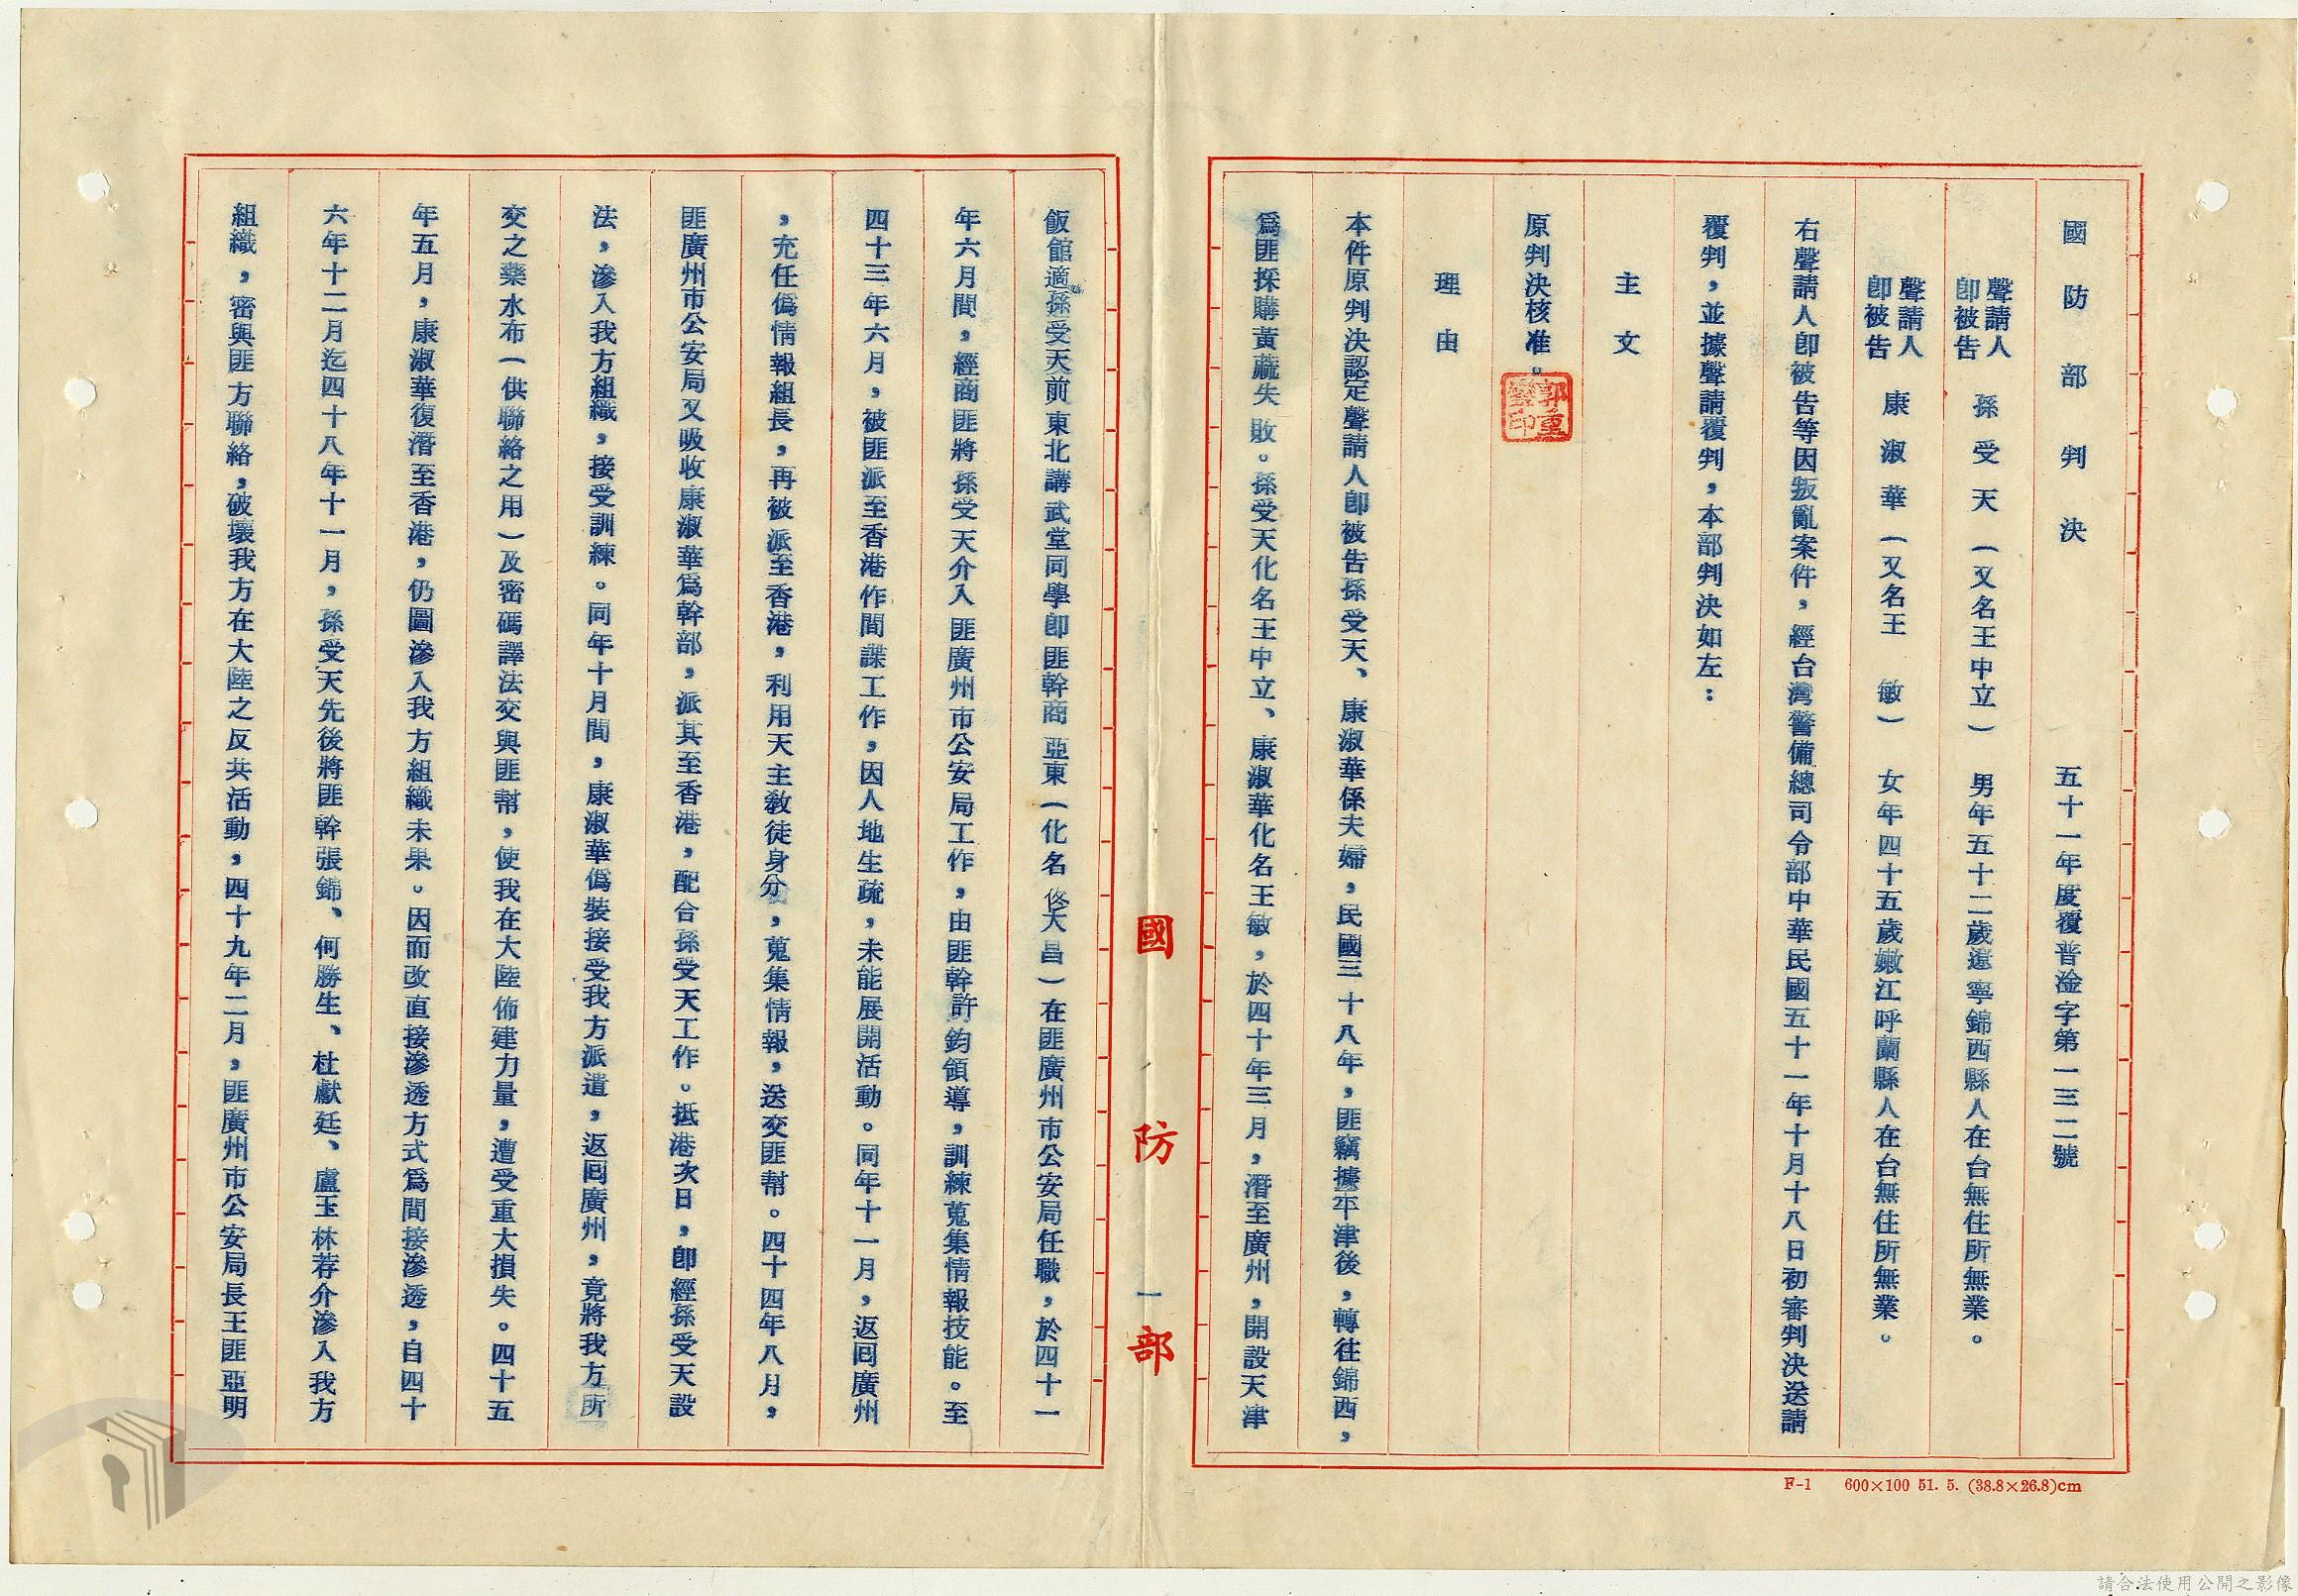 國防部判決　五十一年度覆普淦字第一三二號
聲請人即被告　孫受天（又名王中立）　男年五十二歲遼寧錦西縣人在台無住所無業。
聲請人即被告　康淑華（又名王　敏）　女年四十五歲嫩江呼蘭縣人在台無住所無業。
右聲請人即被告等因叛亂案件，經台灣警備總司令部中華民國五十一年十月十八日初審判決送請
覆判，並據聲請覆判，本部判決如左：
主文
原判決核准。
理由
本件原判決認定聲請人即被告孫受天、康淑華係夫婦，民國三十八年，匪竊據平津後，轉往錦西，
爲匪採購黃蔴失敗。孫受天化名王中立、康淑華化名王敏，於四十年三月，潛至廣州，開設天津
國防部
一
飯館適孫受天前東北講武堂同學即匪幹商亞東（化名佟大昌）在匪廣州市公安局任職，於四十一
年六月間，經商匪將孫受天介入匪廣州市公安局工作，由匪幹許鈞領導，訓練蒐集情報技能。至
四十三年六月，被匪派至香港作間諜工作，因人地生疏，未能展開活動。同年十一月，返回廣州
，充任僞情報組長，再被派至香港，利用天主教徒身分，蒐集情報，送交匪幫。四十四年八月，
匪廣州市公安局又吸收康淑華爲幹部，派其至香港，配合孫受天工作。抵港次日，即經孫受天設
法，滲入我方組織，接受訓練。同年十月間，康淑華僞裝接受我方派遣，返回廣州，竟將我方所
交之藥水布（供聯絡之用）及密碼譯法交與匪幫，使我在大陸佈建力量，遭受重大損失。四十五
年五月，康淑華復潛至香港，仍圖滲入我方組織未果。因而改直接滲透方式爲間接滲透，自四十
六年十二月迄四十八年十一月，孫受天先後將匪幹張錦、何勝生、杜獻廷、盧玉林荐介滲入我方
組織，密與匪方聯絡，破壞我方在大陸之反共活動，四十九年二月，匪廣州市公安局長王匪亞明
F-1　600×100 51. 5. (38.8×26.8)cm
請合法使用公開之影像